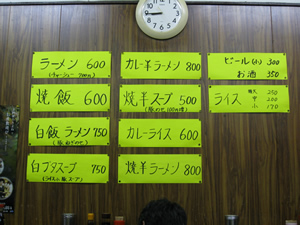 ラーメン 600
(チャーシュー 700円)
焼飯 600
白飯ラーメン 750
(豚、ねぎのせ)
白ブタスープ 750
(ライスと豚スープ)
カレー羊ラーメン 800
焼羊スープ 500
カレーライス 600
焼羊ラーメン 800
ビール(小) 300
お酒 350
ライス 大 250
中 200
小 170